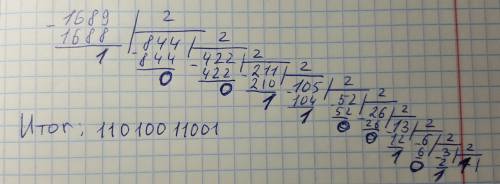 - 1689 | 2
1688 | - 844 | 2
1 844 | - 422 | 2
0 422 | - 211 | 2
0 210 | - 105 | 2
1 104 | - 52 | 2
1 52 | - 26 | 2
0 26 | - 13 | 2
0 12 | - 6 | 2
1 6 | 3 | 2
0 2 | 1
1
Итог: 11010011001